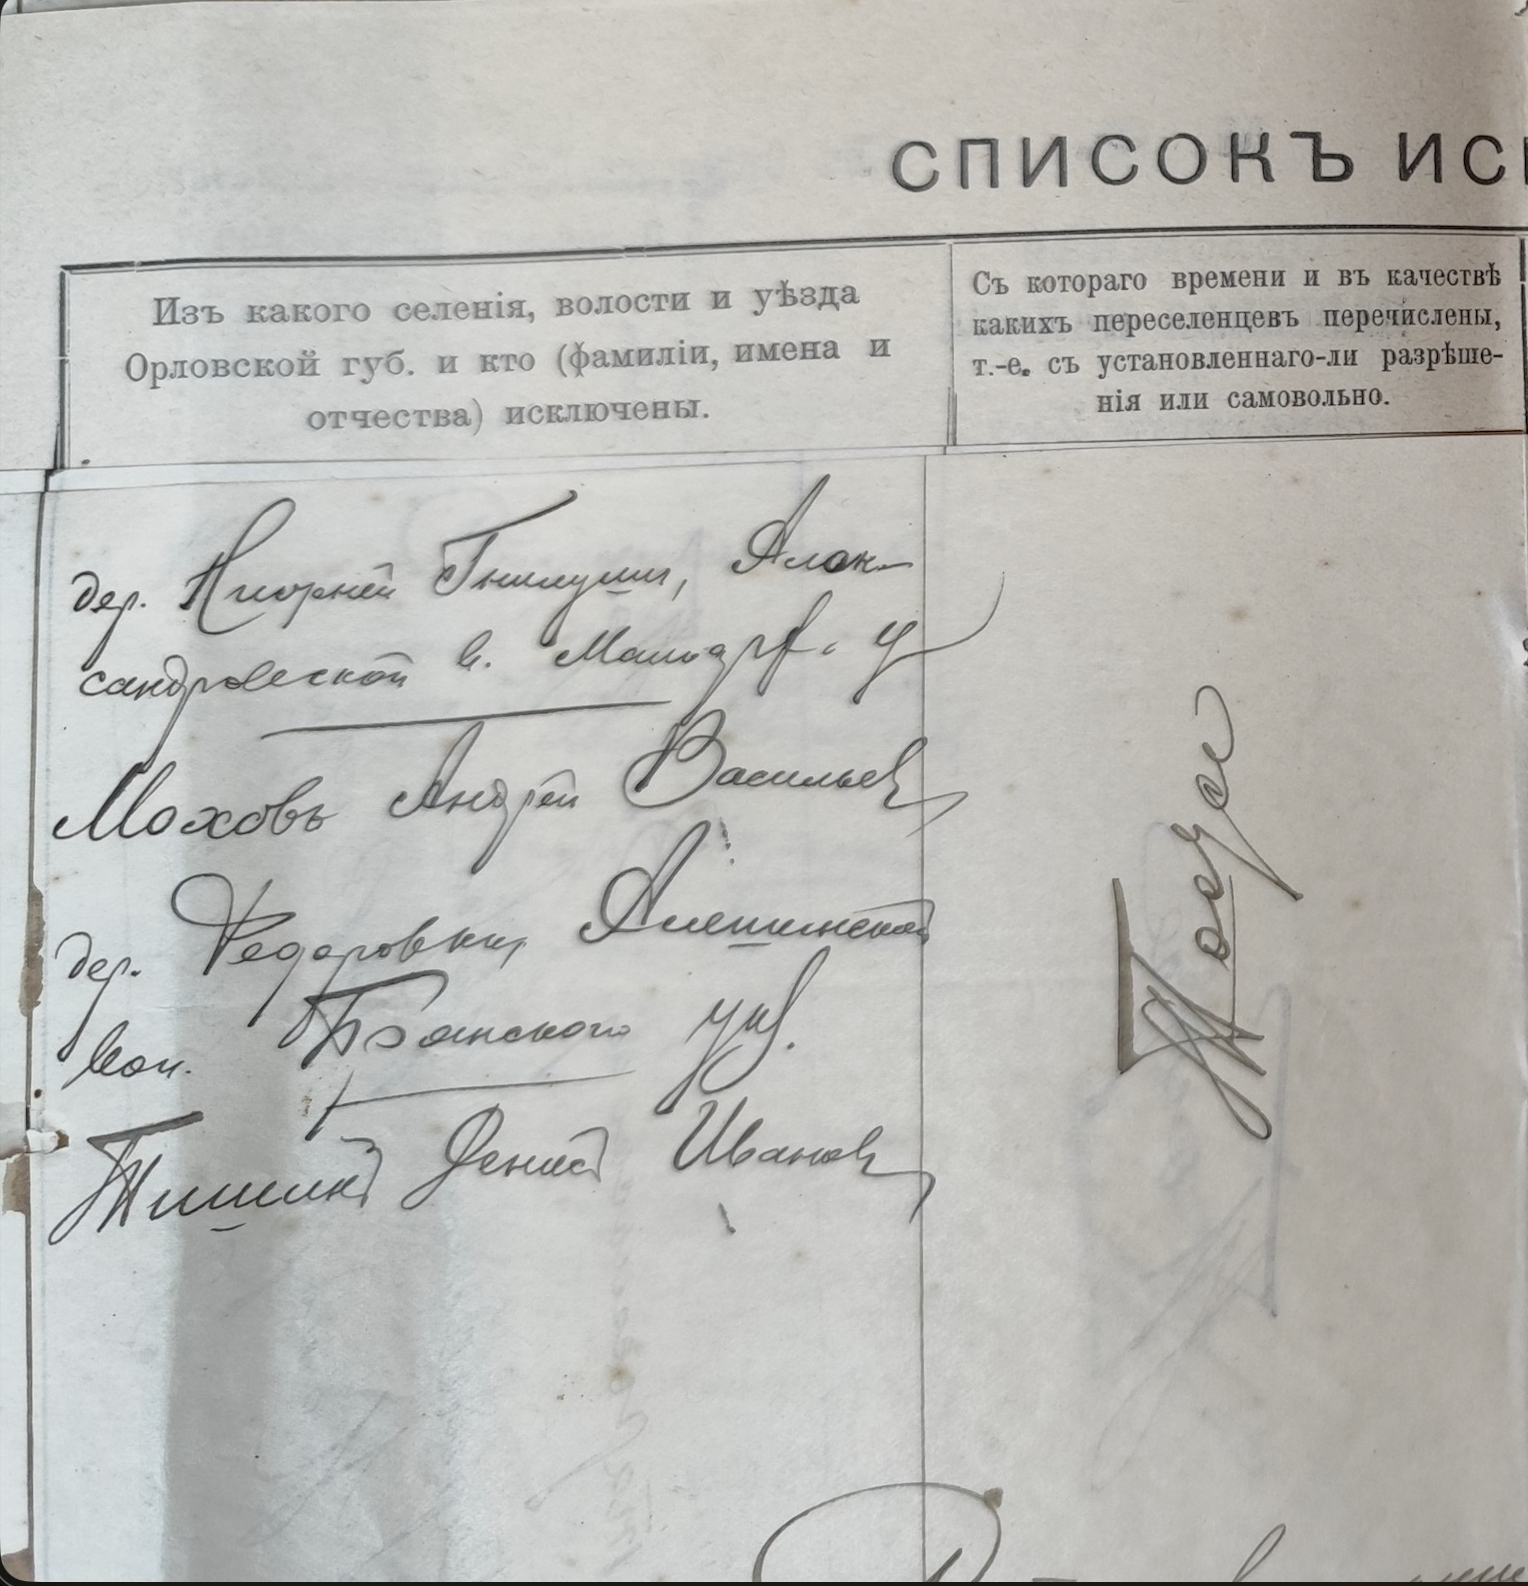 СПИСОКЪ ИС
Изъ какого селенія, волости и уѣзда
Орловской губ. и кто (фамиліи, имена и
отчества) исключены.
Съ котораго времени и въ качествѣ
какихъ переселенцевъ перечислены,
т.-е. съ установленнаго-ли разрѣше-
нія или самовольно.
дер. Нижней Гнилуши, Алек-
сандровской в. Малоарх. у
Моховъ Андрей Васильев
дер. Федоровки, Алешинской
вол. Брянского уѣз.
Тишинъ Денис Иванов